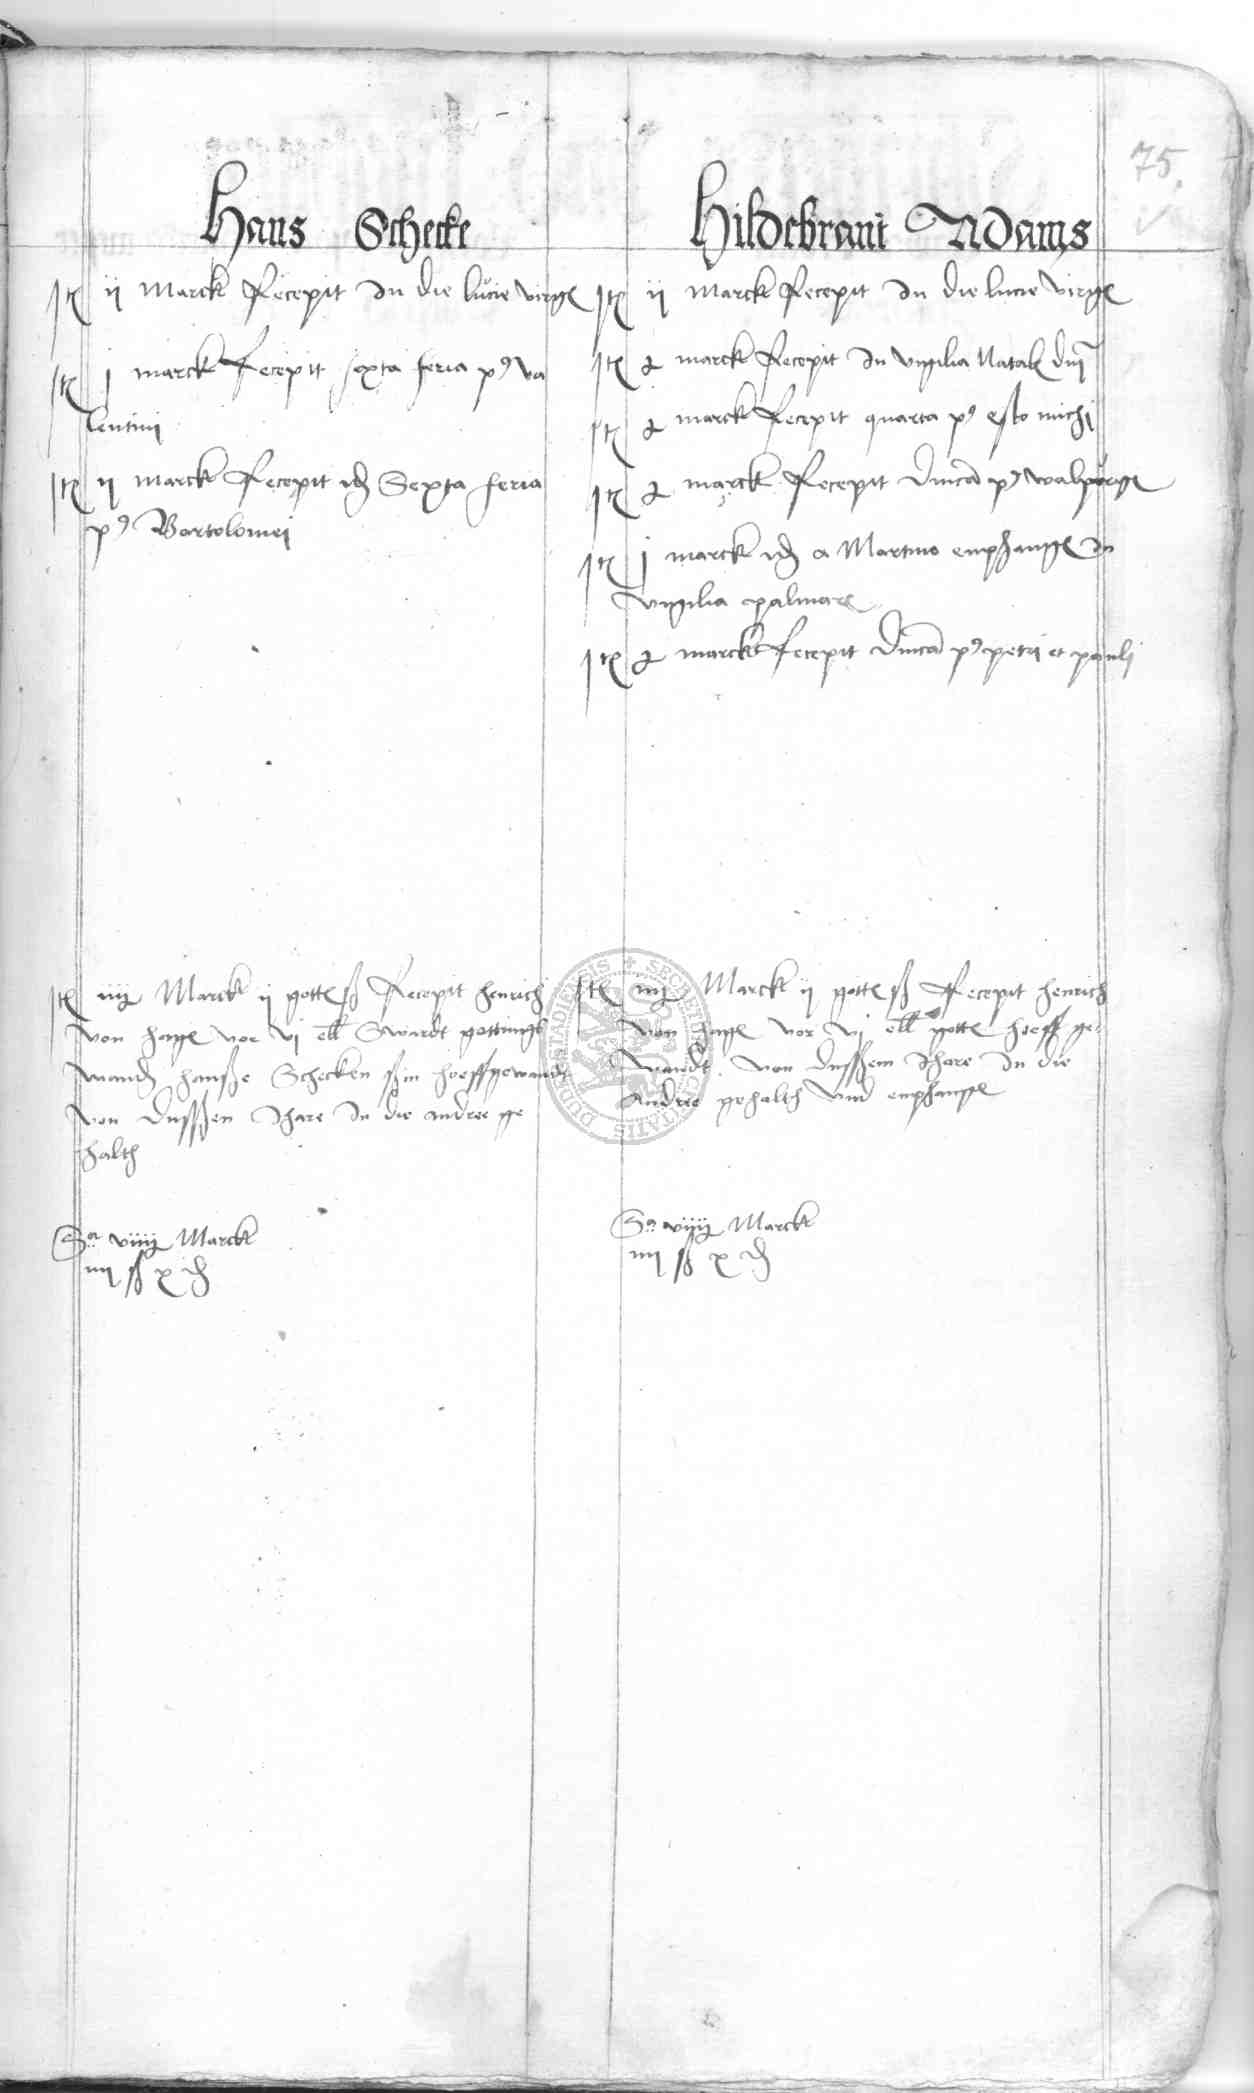 75.
Hans Schecke
Itē ij Marck Recepit In die lucie virgē
Itē j marck Recepit sexta feria pꝰ va
lentini
Itē ij marck Recepit idē Sexta feria
pꝰ Bartolomei
Itē iiij Marck ij gottē ß Recepit henrich
von hagē vor vj ell Swardt gottings
wandt hanße Schecken ßin hoeffgewandt
von dußßen Jhare In die andree ge
halth
Sa viiij Marck
iiij ß x ₰
Hildebrant Adams
Itē ij Marck Recepit In die lucie virgē
Itē marck Recepit In vigilia Natalē dni
Itē marck Recepit quarta pꝰ esto michi
Itē marck Recepit dnica pꝰ walpurgē
Itē j marck idē a Martino emphangē in
vigilia palmarē
Itē marck Recepit dnica pꝰ petri et pauli
Itē iiij Marck ij gottē ß Recepit henrich
von hagē vor vj ell gottē hoeff ge-
wandt von dußßem Jhare In die
Andree gehalth vnd emphangē
Sa viiij Marck
iiij ß x ₰
SECRETUM CIVITATIS DUDERSTADIENSIS